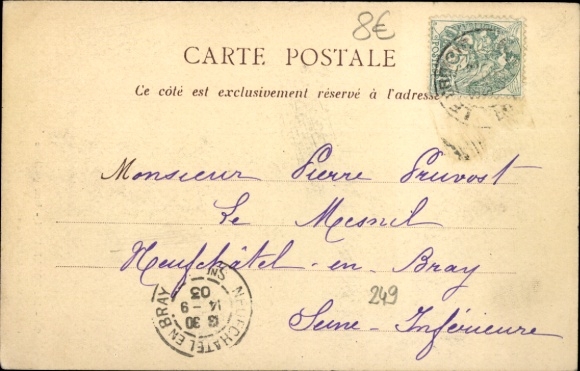 8€
CARTE POSTALE
Ce côté est exclusivement réservé à l'adresse
Monsieur Pierre Pruvost
Le Mesnil
Neufchâtel-en-Bray
249
Seine-Inférieure
NEUFCHATEL EN BRAY
13 30
14 - 9
03